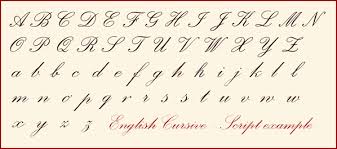 A B C D E F G H I J K L M N
O P Q R S T U V W X Y Z
a b c d e f g h i j k l l
m n o p q r r s s t t u v w
x y z z English Cursive Script example